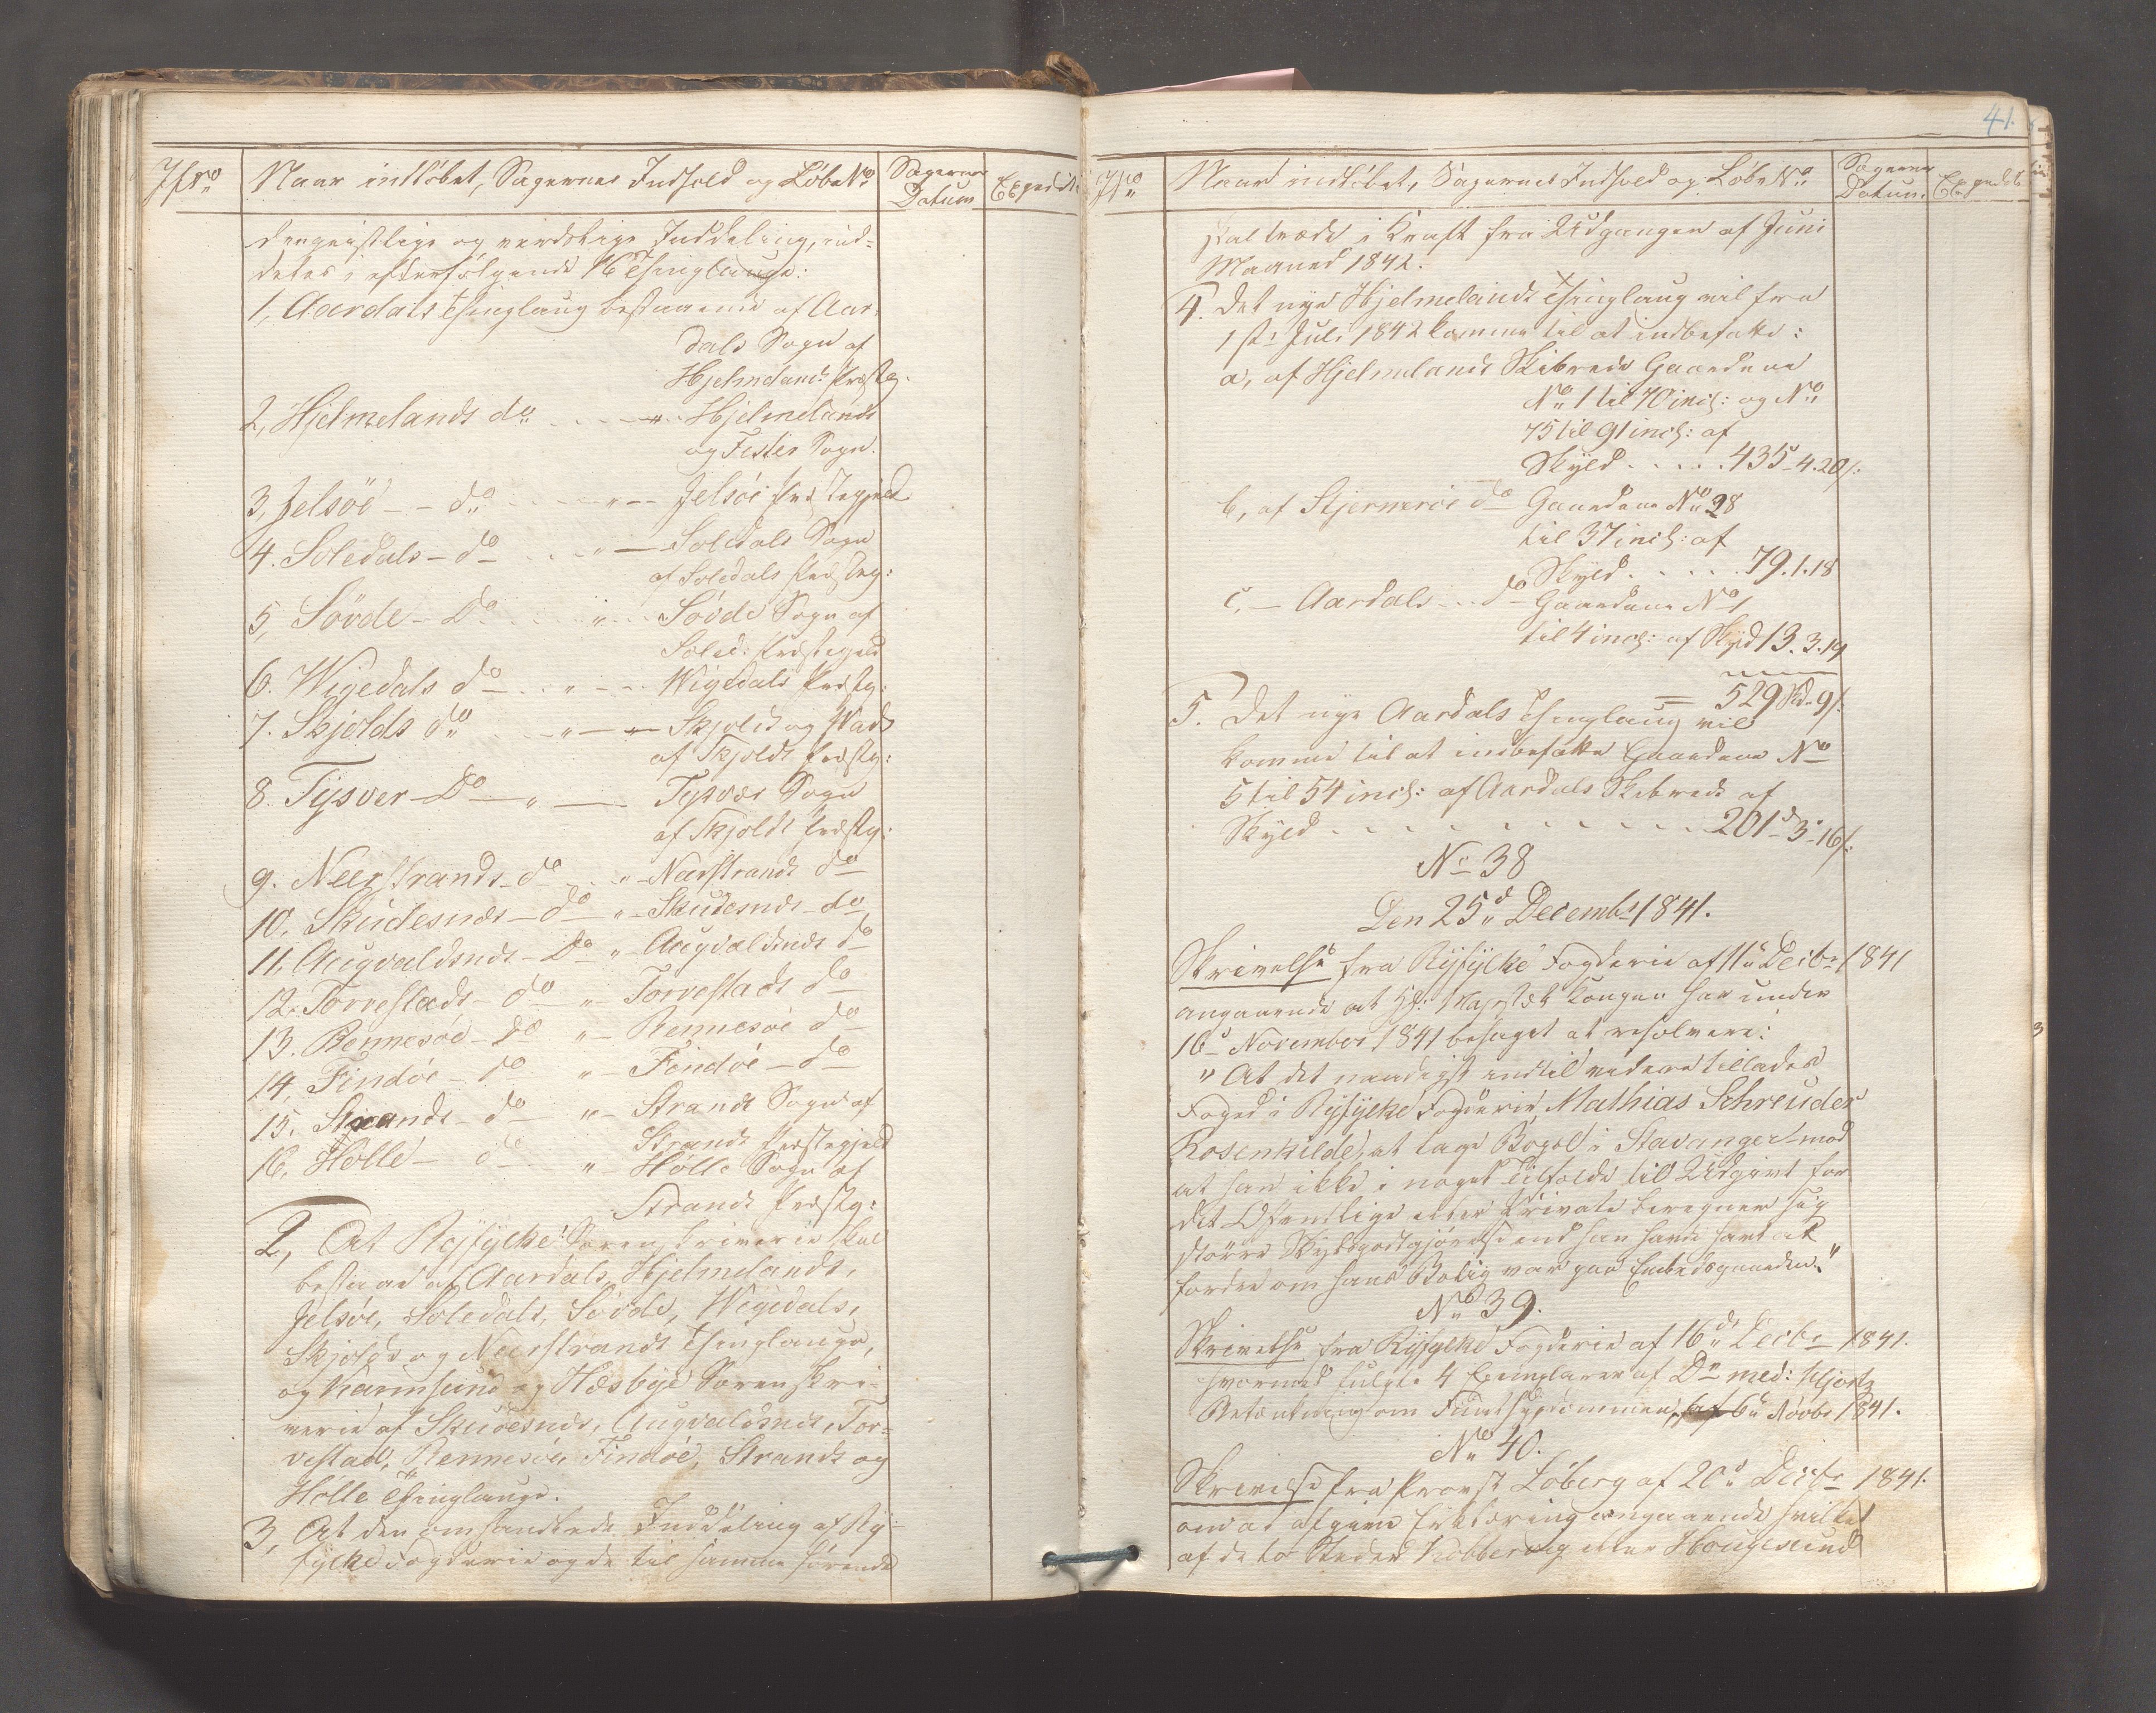 Jfr No
Naar indløbet, Sagernes Indhold og Løbe No
Sagernes Datum
Expedit:
den geistlige og verdslige Inddeling, ind-
deles i efterfølgende 16 Thinglauge:
1, Aardals Thinglaug bestaaende af Aar-
dals Sogn af
Hjelmelands Præsteg.
2, Hjelmelands do . . . " Hjelmelands
og Fister Sogn.
3, Jelsöe - - do . . " - - Jelsøe Præstegjeld
4. Soledals - do . . . " - Soledals Sogn
af Soledals Præsteg:
5, Søvde - Do . . . " . . Søvde Sogn af
Soled: Præstegjeld
6. Wigedals do . . " - - Wigedals Præsteg:
7. Skjolds do . . . " - - Skjold og Wads
af Skjolds Præsteg:
8. Tysver - Do - " - Tysvær Sogn
af Skjolds Præsteg:
9. Neerstrands - do . . " - Neerstrands do
10. Skudesnes - do " - Skudesnes - do
11. Augvaldsnes - Do " - Augvaldsnes do
12. Torvestads - do " - Torvestads do
13. Rennesøe - do " - Rennesøe do
14, Findøe - do " - Findøe - do
15. Strands - do " - Strands Sogn af
Strands Præstegjeld
16, Hølle - do " - Hølle Sogn af
Strands Præsteg:
2, At Ryfylke Sorenskriverie skal
bestaae af Aardals, Hjelmelands,
Jelsøe, Soledals, Søvde, Wigedals,
Skjolds og Neerstrands Thinglauge,
og Karmsund og Hesbye Sorenskri-
verie af Skudesnes, Augvaldsnes, Tor-
vestad, Rennesøe, Findøe, Strands og
Hølle Thinglauge.
3, At den omhandlede Inddeling af Ry-
fylke Fogderie og de til samme hørende
41.
Jfr No
Naar indløbet, Sagernes Indhold og Løbe No
Sagernes Datum.
Expedit
skal træde i Kraft fra Udgangen af Juni
Maaned 1842.
4. Det nye Hjelmelands Thinglaug vil fra
1ste Juli 1842 komme til at indbefatte:
a, af Hjelmelands Skibrede Gaardene
No 1 til 70 incl: og No
75 til 91 incl: af
Skyld . . . . . 435 - 4. 20 ß:
b, af Stjernerøe do Gaardene No 28
til 37 incl: af
Skyld . . . . . 79. 1. 18
c, - Aardals - . . do Gaardene No 1
til 4 incl: af Skyld 13. 3. 19
= 529 Pd - 9 ß:
5. Det nye Aardals Thinglaug vil
komme til at indbefatte Gaardene No
5 til 54 incl: af Aardals Skibrede af
Skyld . . . . . . . . . . 201 d 3 - 16 ß:
No 38
Den 25d Decembr 1841.
Skrivelse fra Ryfylke Fogderie af 11d Decbr 1841
angaaende at Hs: Majestæt Kongen har under
16d November 1841 behaget at resolvere:
" At det naadigst indtil videre tillades
Foged i Ryfylke Fogderie, Mathias Schreuder
Rosenkilde, at tage Bopæl i Stavanger mod
at han ikke i noget Tilfælde til Udgivt for
det Offentlige eller Private beregner sig
større Skydsgodtgjørelse end han havde havt at
fordre om hans Bolig var paa Embedsgaarden."
No 39.
Skrivelse fra Ryfylke Fogderie af 16d Decbr 1841.
hvormed fulgte 4 Exemplarer af Dr med: Hjorts
Betænkning om Radesygdommen, af 6d Novbr 1841.
No 40.
Skrivelse fra Provst Løberg af 20d Decbr 1841.
om at afgive Erklæring angaaende hvilket
af de to Steder Kobbervig eller Hougesund